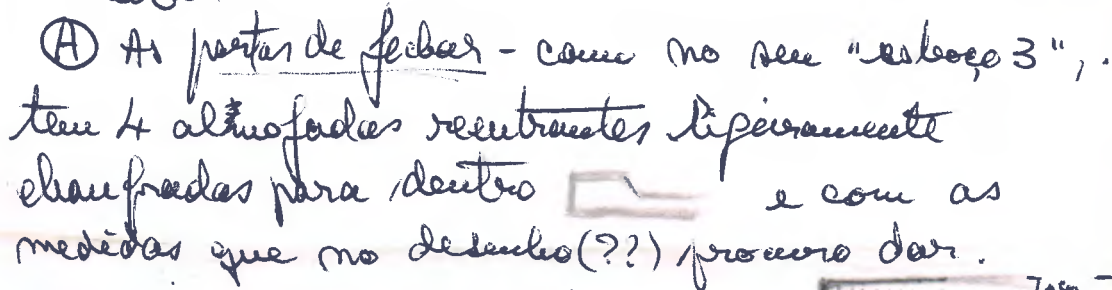 Ⓐ As portas de fechar - como no seu "esboço 3",
tem 4 almofadas reentrantes ligeiramente
chanfradas para dentro e com as
medidas que no desenho(??) procuro dar.